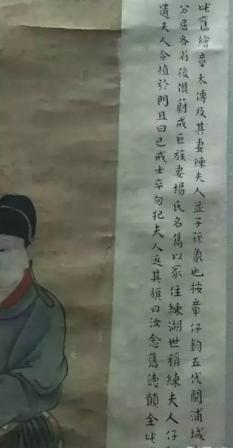 此舊繪章太傅及其妻練夫人並子孫像也按章仔鈞五代閩浦城
分居各省後俱蔚成巨族妻楊氏名雋以家住練湖世稱練夫人仔
遺夫人令植於門且曰已戒士卒勿犯夫人返其旗曰汝念舊德願全此